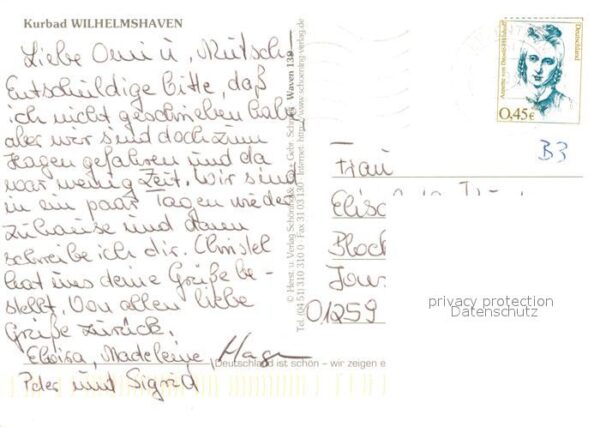 Kurbad WILHELMSHAVEN
Liebe Omi u. Mutsch
Entschuldige bitte, daß
ich nicht geschrieben habe
aber wir sind doch zum
Hagen gefahren und da
war wenig Zeit. Wir sind
in ein paar Tagen wieder
zuhause und dann
schreibe ich dir. Christel
hat uns deine Grüße be-
stellt. Von allen liebe
Grüße zurück.
Eloisa, Madeleine, Hagen
Peter und Sigrid
© Herst. u. Verlag Schöning & Co + Gebr. Schmidt
Waven 139
Tel. (04 51) 310 310 0 · Fax 31 03 130 · Internet: http://www.schoening-verlag.de
Deutschland ist schön – wir zeigen e
Deutschland
Annette von Droste-Hülshoff
0,45€
B3
Frau
Elisa
Block
Jous
01259
privacy protection
Datenschutz